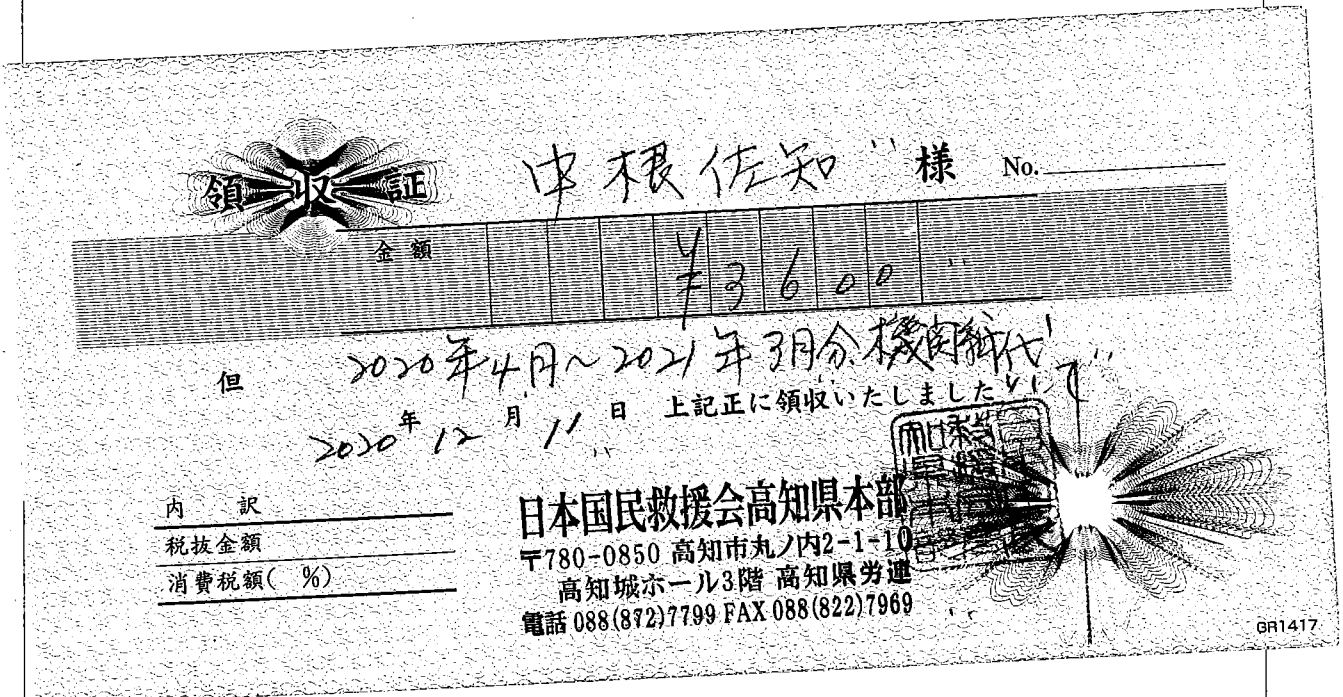 領収証
中根佐知 様 No.
金額
¥3600
但 2020年4月～2021年3月分機関紙代
として
2020年12月11日 上記正に領収いたしました
内訳
税抜金額
消費税額( %)
日本国民救援会高知県本部
〒780-0850 高知市丸ノ内2-1-10
高知城ホール3階 高知県労連
電話 088(872)7799 FAX 088(822)7969
GR1417